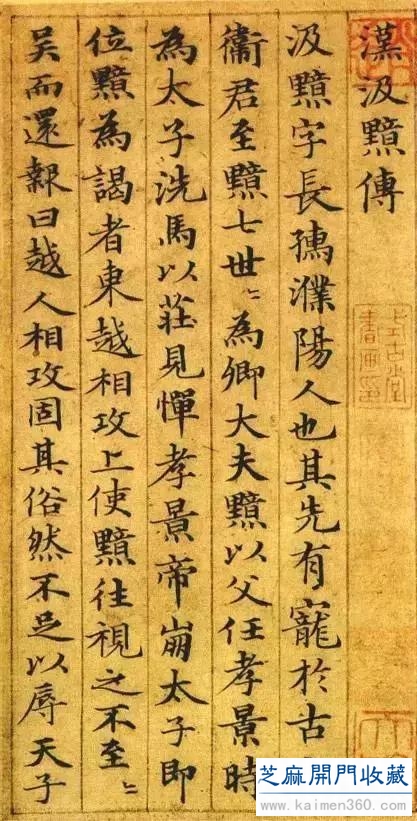 漢汲黯傳
汲黯字長孺濮陽人也其先有寵於古
衛君至黯七世〻為卿大夫黯以父任孝景時
為太子洗馬以莊見憚孝景帝崩太子即
位黯為謁者東越相攻上使黯往視之不至〻
吴而還報曰越人相攻固其俗然不足以辱天子
芝麻開門收藏
www.kaimen360.com